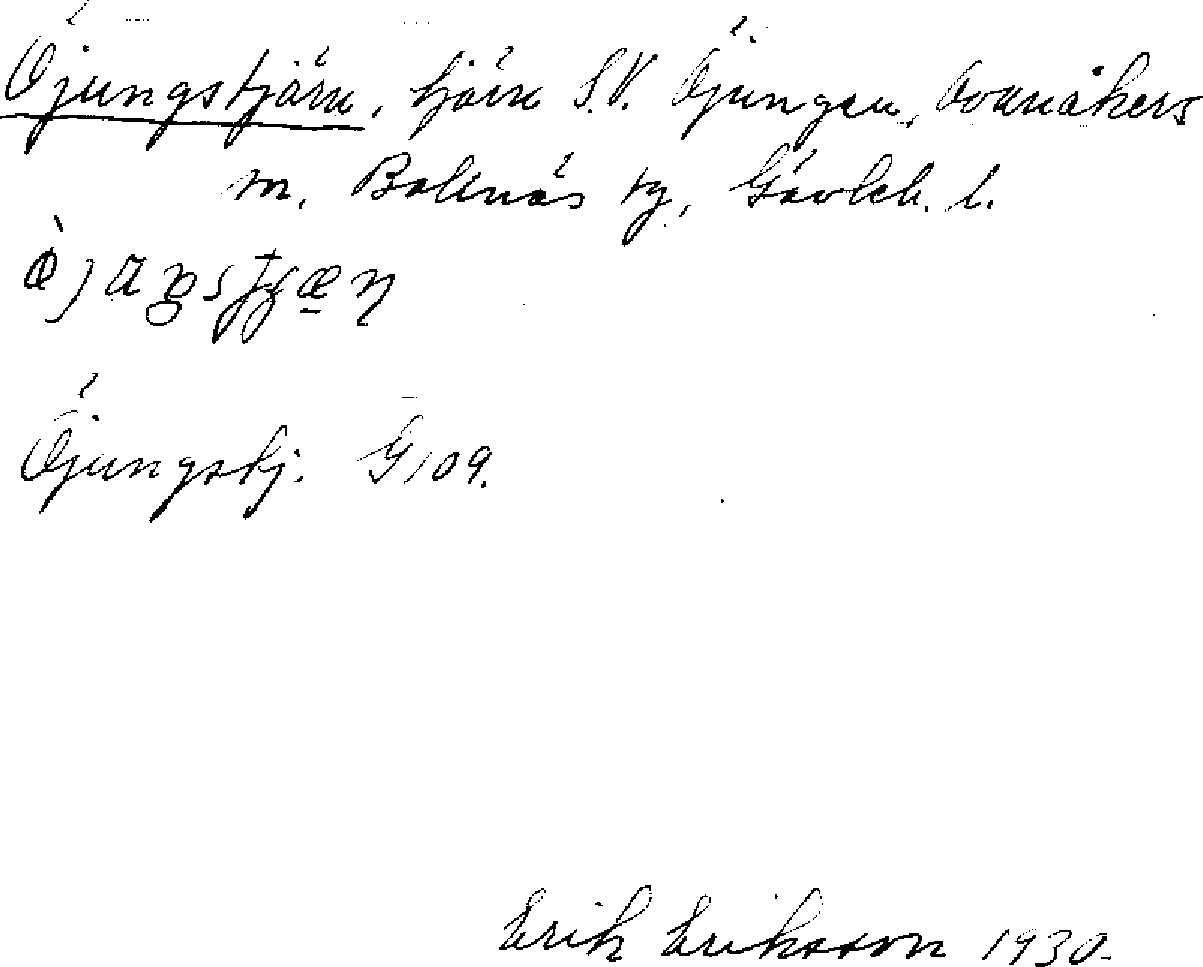 Öjungstjärn, tjärn S.V. Öjungen, Ovanåkers
m. Bollnäs tg, Gävleb. l.
Öjungstj. G 109.
Erik Eriksson 1930.